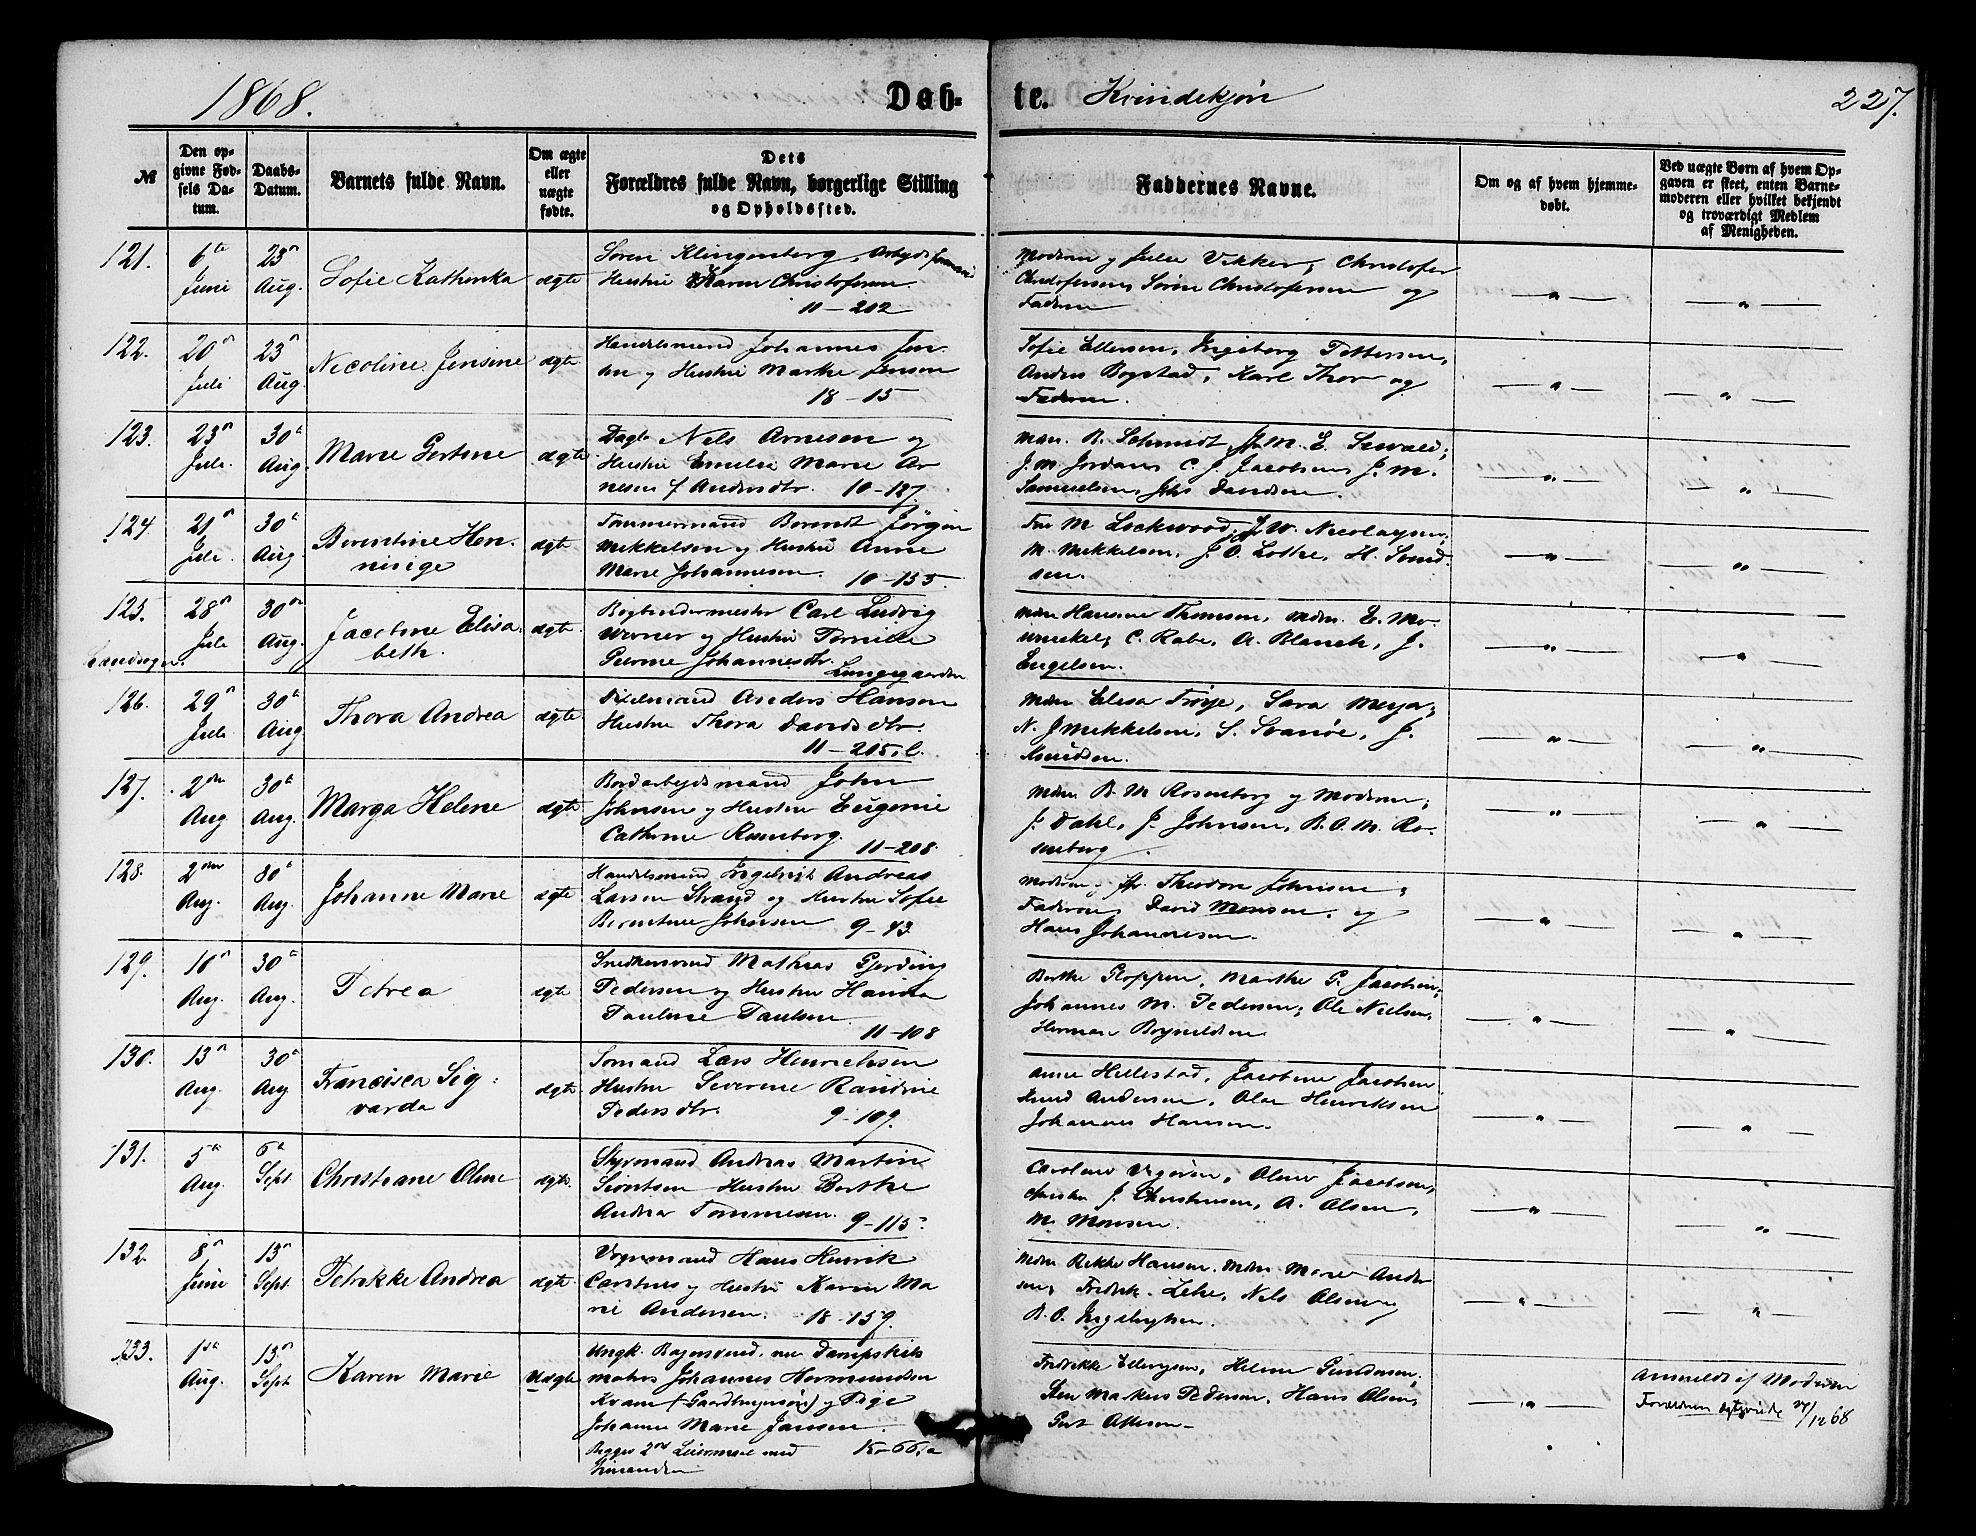 1868.
Døbte. Kvindekjøn
227.
№
Den opgivne Fødsels Datum.
Daabs-Datum.
Barnets fulde Navn.
Om ægte eller uægte fødte.
Dets Forældres fulde Navn, borgerlige Stilling og Opholdssted.
Faddernes Navne.
Om og af hvem hjemmedøbt.
Ved uægte Børn af hvem Opgaven er skeet, enten Barnemoderen eller hvilket bekjendt og troværdigt Medlem af Menigheden.
121. 6te Juni 23n Aug. Sofie Kathinka ægte
Søren Klingenberg, Arbeids
Hustru Karen Christofersen
11-202
Moderen og Julie Vikker, Christofer
Christofersen, Sörine Christofersen og
Faderen
122. 20n Juli 23n Aug. Nicoline Jensine ægte
Handelsmand Johannes Jen
sen og Hustru Marthe Jensen
18-15
Sofie Ellersen, Ingeborg Pettersen,
Anders Bogstad, Karl Thor og
Faderen.
123. 23n Juli. 30te Aug. Marie Gertine ægte
Nils Arnesen og
Hustru Emilie Marie Ar
nesen f Andersdtr. 10-127.
B. Schmidt, J. M. E. Sewald;
J. M. Jordan, C. J. Jacobsen, J. M.
Samuelsen, Davidsen.
124. 21n Juli. 30te Aug. Berentine Hen-
ægte
Tømmermand Berendt Jörgen
Mikkelsen og Hustru Anne
Marie Johannesen. 10-155
Fru M Lockwood, J. W. Nicolaysen;
M. Mikkelsen, J. O. Lothe, H. Svend
sen.
125. 28n Juli 30te Aug. Jacobine Elisa
beth. ægte
Landsogn.
Bogbindermester Carl Ludvig
Werner og Hustru Pernille
Johannesdtr.
Lungegaarden
Hansine Thomsen, E. Mo-
winckel; C. Rabe, A. Blauch, J.
Engelsen.
126. 29n Juli 30te Aug Thora Andrea ægte
Anders Hansen
Hustru Thora Davidsdtr.
11-205, C.
Elisa Troye, Sara Meyer;
N. J Mikkelsen, S. Svanöe, J.
Knudsen.
127. 2den Aug 30te Aug. Marga Helene ægte
Bordarbeidsmand John
Johnsen og Hustru Eugenie
Cathrine Rosenberg. 11-208.
B. M Rosenberg og Moderen;
J. Dahl, J. Johnsen, B. O. M. Ro-
senberg
128. 2den Aug. 30te Aug. Johanne Marie ægte
Handelsmand Ingebrigt Andreas
Larsen Strand og Hustru Sofie
Berentine Johnsen 9-43.
Moderen, Theodora Johnsen;
Faderen, David Monsen, og
Hans Johannesen.
129. 10n Aug. 30te Aug. Petrea ægte
Snedkersvend Mathias Gjerding
Pedersen og Hustru Hanna
Pauline Paulsen.
11-108
Berthe Gloppen, Marthe G. Jacobsen;
Johannes M. Pedersen; Ole Nielsen,
Herman
130. 13n Aug. 30te Aug Francisca Sig-
varda ægte
Sömand Lars Henrichsen
Hustru Severine Randine
Pedersdtr. 9-109.
Anne Hillestad, Jacobine Jacobsen
Knud Andersen, Olai Henriksen
Johannes Hansen.
131. 5te Aug. 6te Sept. Christiane Oline ægte
Styrmand Andreas Martin
Sivertsen Hustru Berthe
Andrea Tommesen. 9-115
Caroline Oline Jacobsen,
J. Christensen, A. Olsen,
M. Monsen.
132. 8n Juni 13n Sept. Petrikke Andrea ægte
Vognmand Hans Henrik
Carstens og Hustru Karen Ma
rie Andersen. 18-159.
Rikke Hansen. Marie Ander
sen, Fredrik. Lehe, Nils Olsen,
B. O. Ingebrigtsen.
133. 1ste Aug. 13n Sept Karen Marie Uægte
Ungk. Bagersvend, nu Dampskibs
matros Johannes Hermundsen
Kvam (Gaardbrugersøn) og Pige
Johanne Marie Jansen.
Begges 2det Leiermaal med
hinanden
15-66, a
Fredrikke Ellingsen, Helene Gundersen,
Sten Markus Pedersen, Hans Olsen,
Anmeldt af Moderen
Forældrene ægteviede 27/12 68